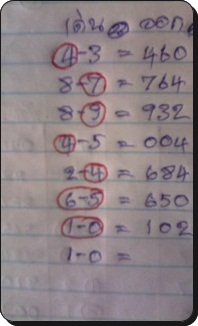 เด่น ออก
4-3 = 460
8-7 = 764
8-9 = 932
4-5 = 004
2-4 = 684
6-5 = 650
1-0 = 102
1-0 =